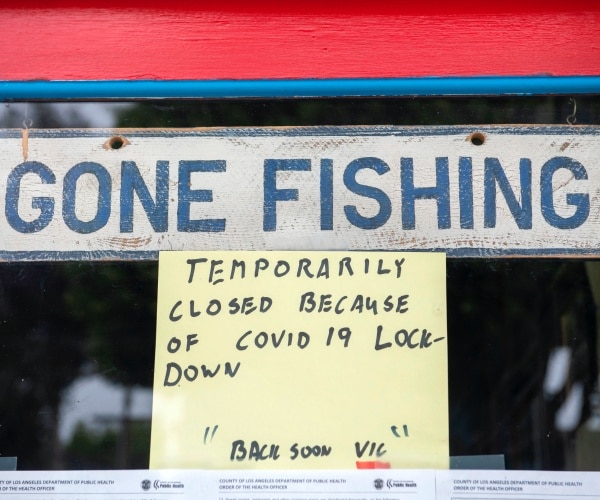 GONE FISHING
TEMPORARILY
CLOSED BECAUSE
OF COVID 19 LOCK-
DOWN
" BACK SOON VIC "
COUNTY OF LOS ANGELES DEPARTMENT OF PUBLIC HEALTH
ORDER OF THE HEALTH OFFICER
Public Health
COUNTY OF LOS ANGELES DEPARTMENT OF PUBLIC HEALTH
ORDER OF THE HEALTH OFFICER
Public Health
COUNTY OF LOS ANGELES DEPARTMENT OF PUBLIC HEALTH
ORDER OF THE HEALTH OFFICER